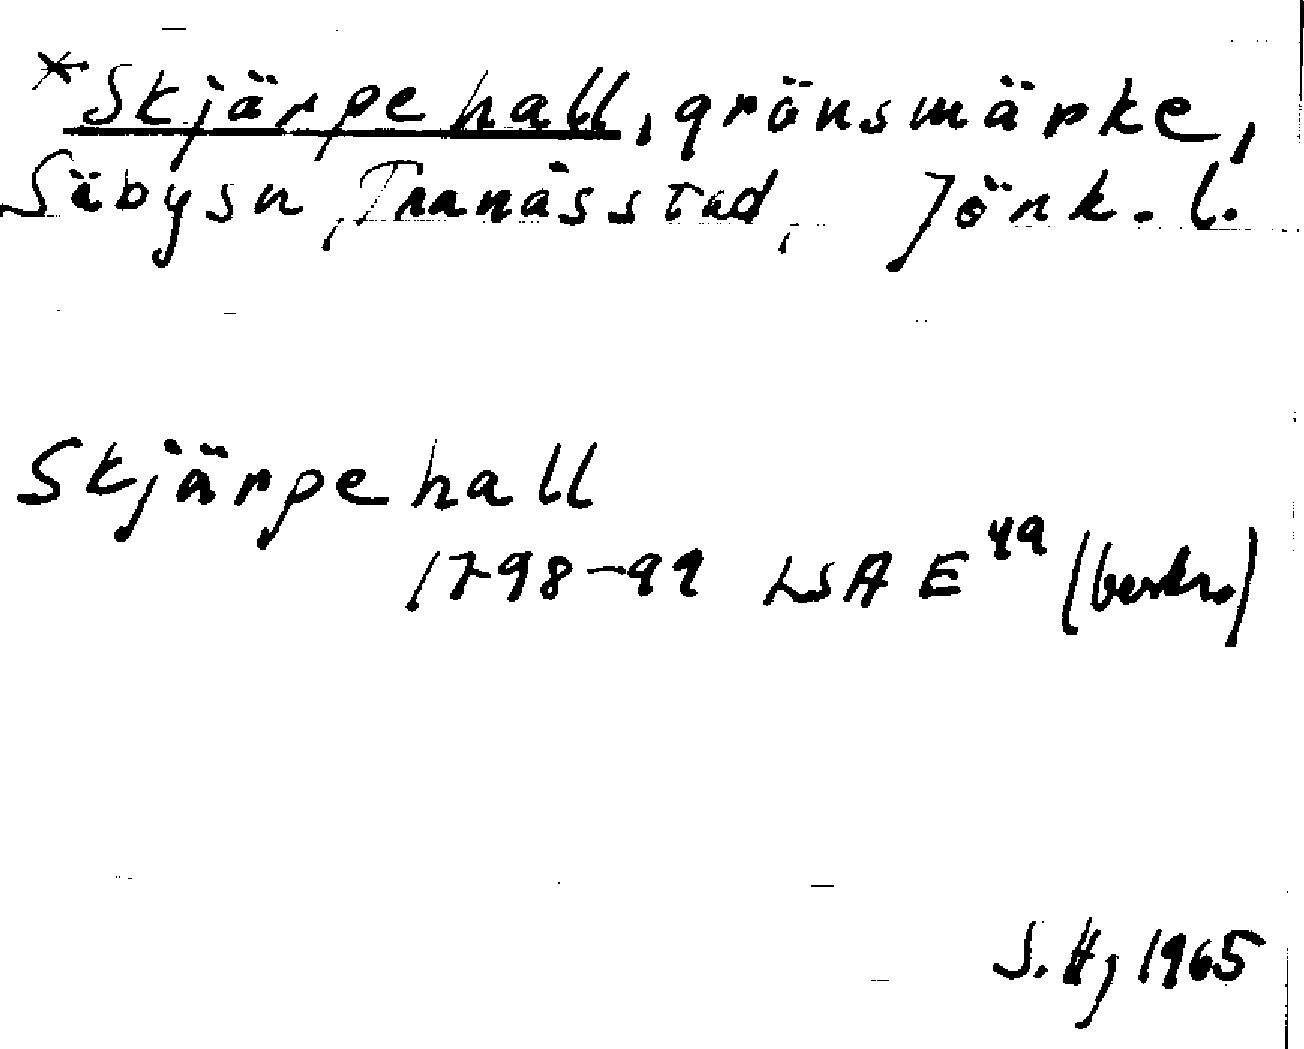 *Skjärpehall, gränsmärke,
Säby sn, Tranås stad, Jönk. l.
Skjärpehall
1798-99 LSA E 49 (beskr.)
S. Hj 1965